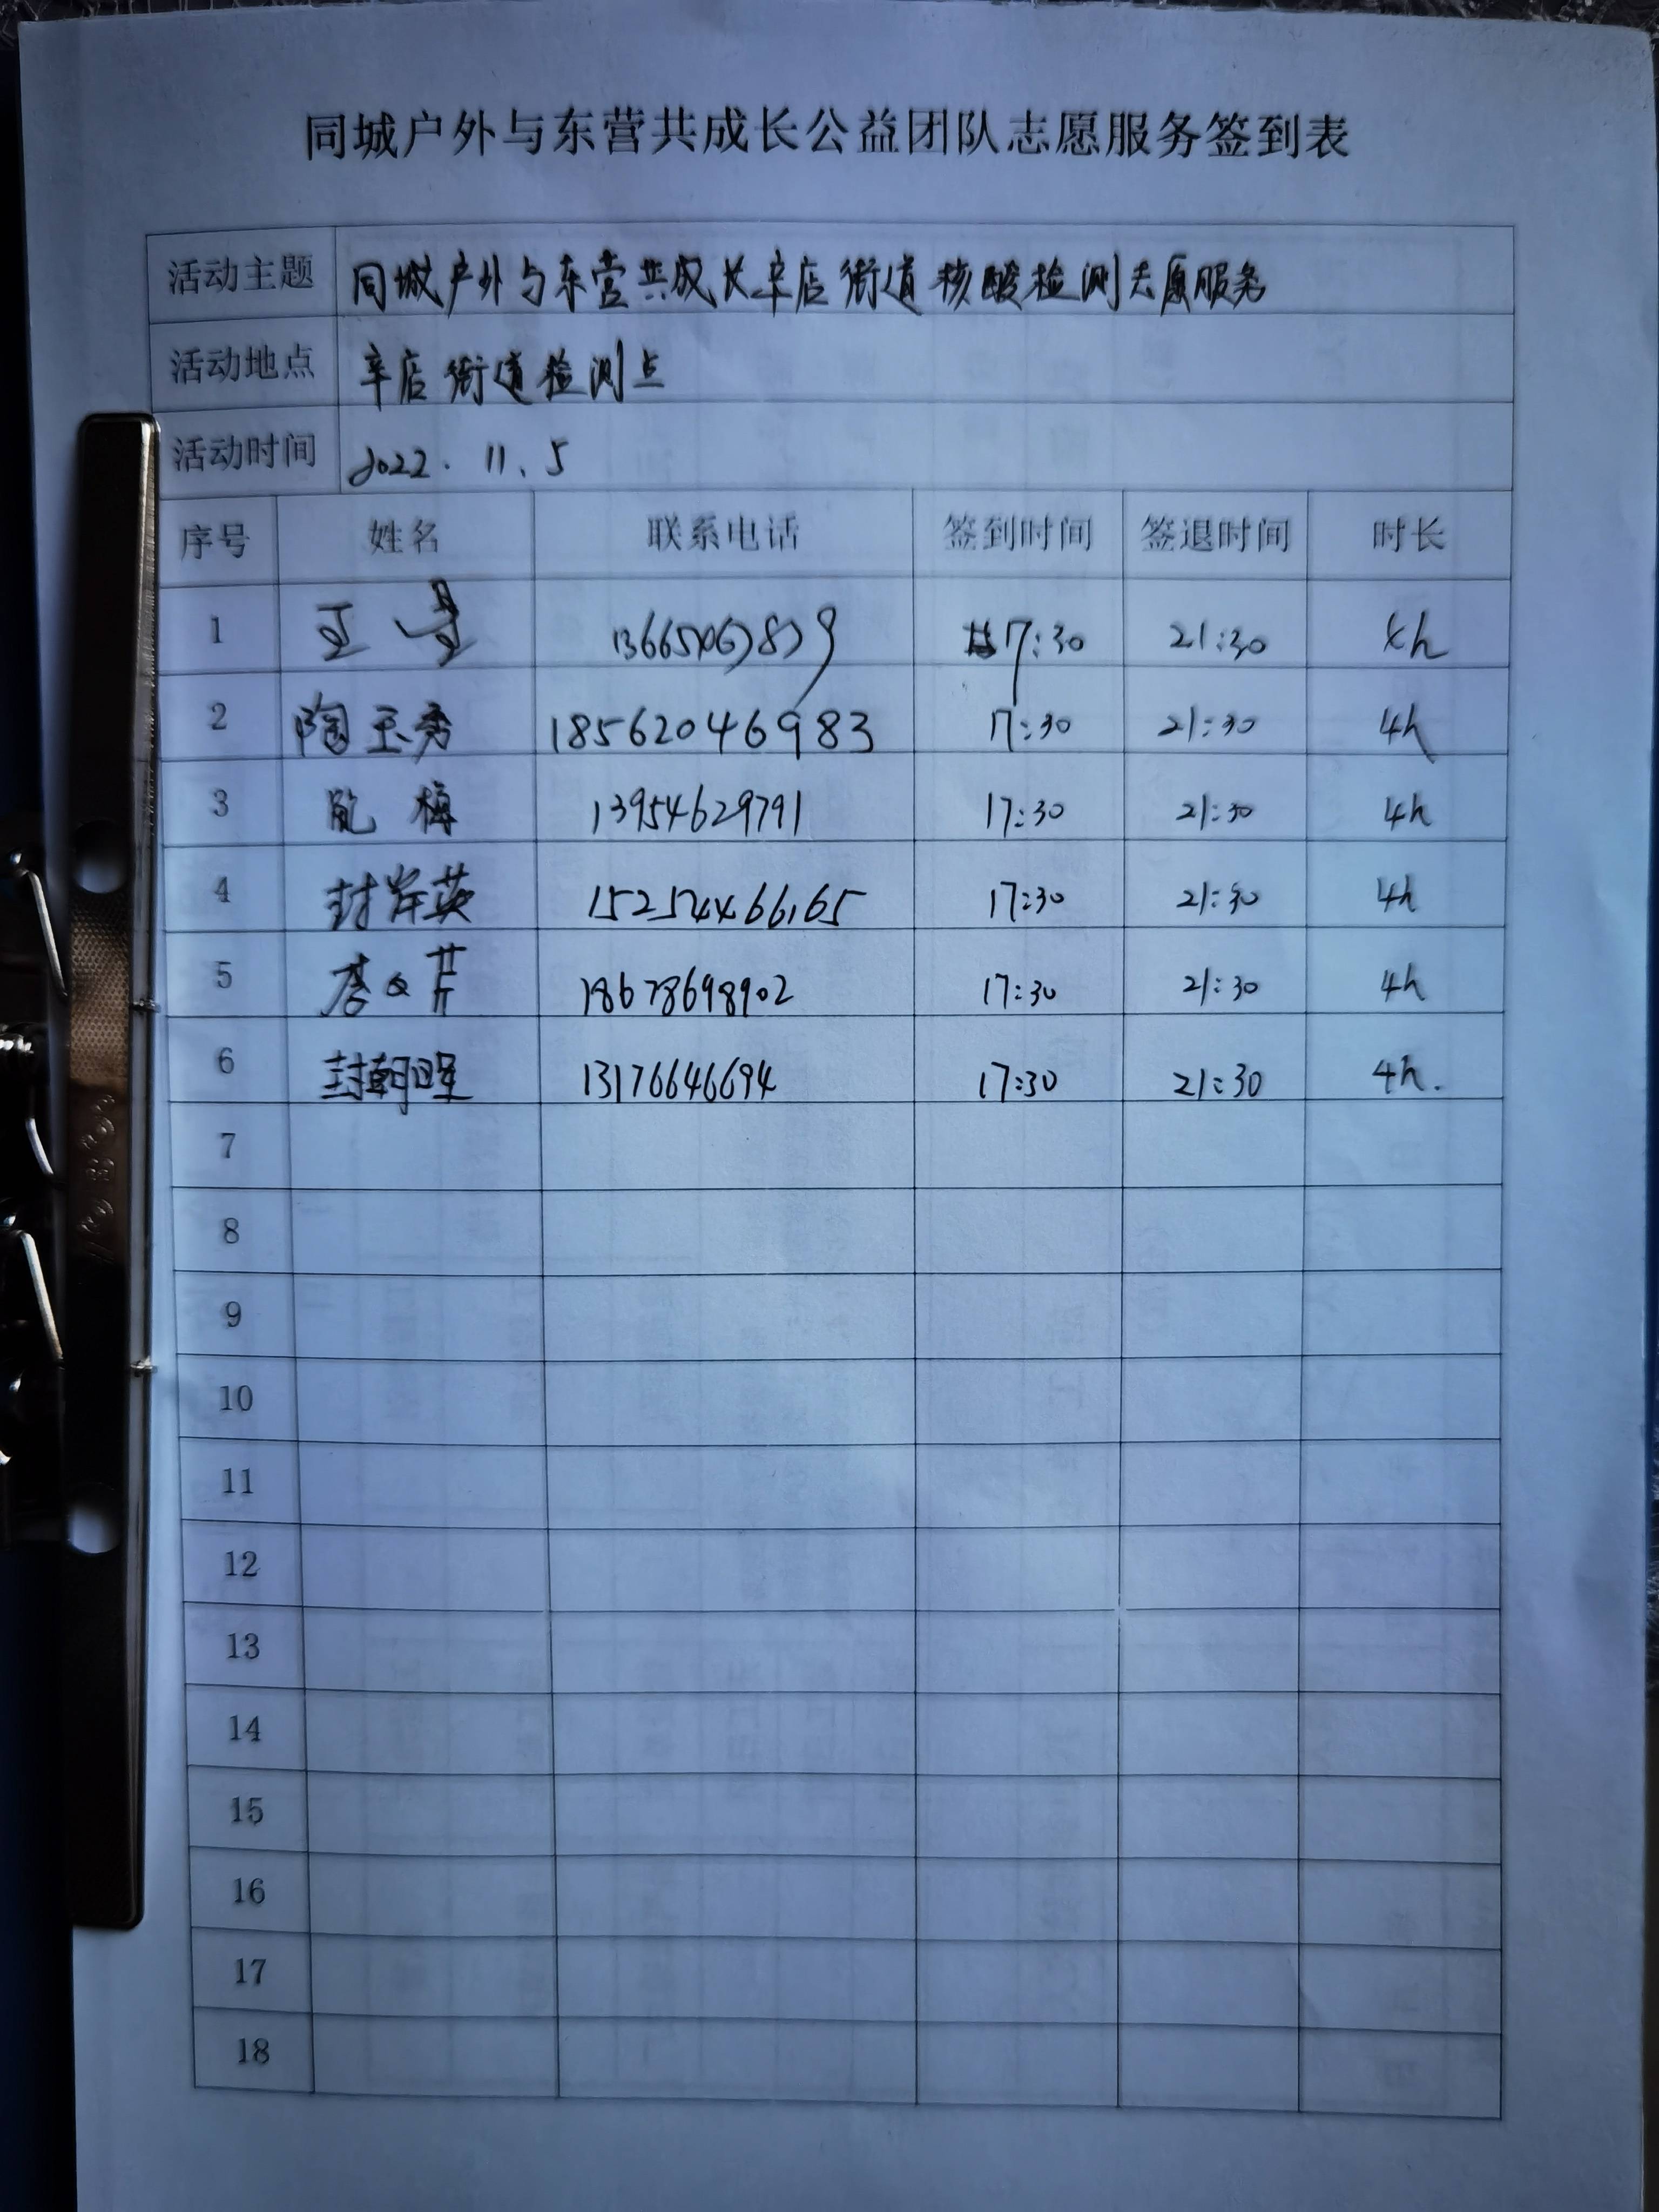 同城户外与东营共成长公益团队志愿服务签到表
活动主题 同城户外与东营共成长辛店街道核酸检测志愿服务
活动地点 辛店街道检测点
活动时间 2022.11.5
序号 姓名 联系电话 签到时间 签退时间 时长
1 17:30 21:30 4h
2 陶玉秀 18562046983 17:30 21:30 4h
3 梅 13954629791 17:30 21:30 4h
4 封岸英 15254466165 17:30 21:30 4h
5 李文芹 18678698902 17:30 21:30 4h
6 封朝曜 13176646694 17:30 21:30 4h.
7
8
9
10
11
12
13
14
15
16
17
18